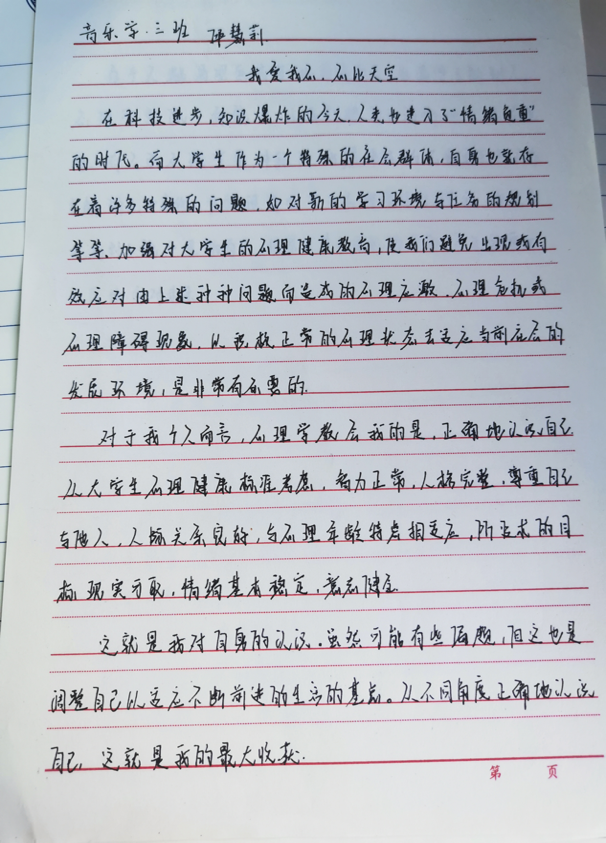 音乐学·三班 钟慧莉
我爱我心.心比天空
在科技进步,知识爆炸的今天.人类也进入了“情绪负重”
的时代。而大学生作为一个特殊的社会群体,自身也就存
在着许多特殊的问题,如对新的学习环境与任务的规划
等等、加强对大学生的心理健康教育,使我们避免出现或有
效应对由上述种种问题而造成的心理应激、心理危机或
心理障碍现象.以积极正常的心理状态去适应当前社会的
发展环境,是非常有必要的.
对于我个人而言,心理学教会我的是,正确地认识自己
从大学生心理健康标准考虑,智力正常,人格完整,尊重自己
与他人、人际关系良好,与心理年龄特点相适应,所追求的目
标现实可取,情绪基本稳定,意志健全.
这就是我对自身的认识.虽然可能有些偏题,但这也是
调整自己以适应不断前进的生活的基点。从不同角度正确地认识
自己,这就是我的最大收获.
第 页